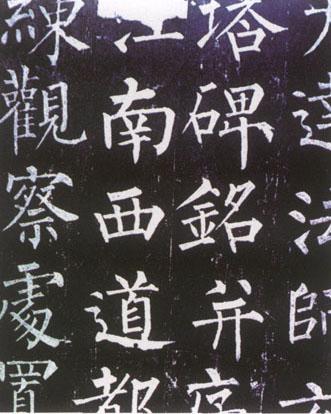 大達法師玄
塔碑銘并序
江南西道都
練觀察處置